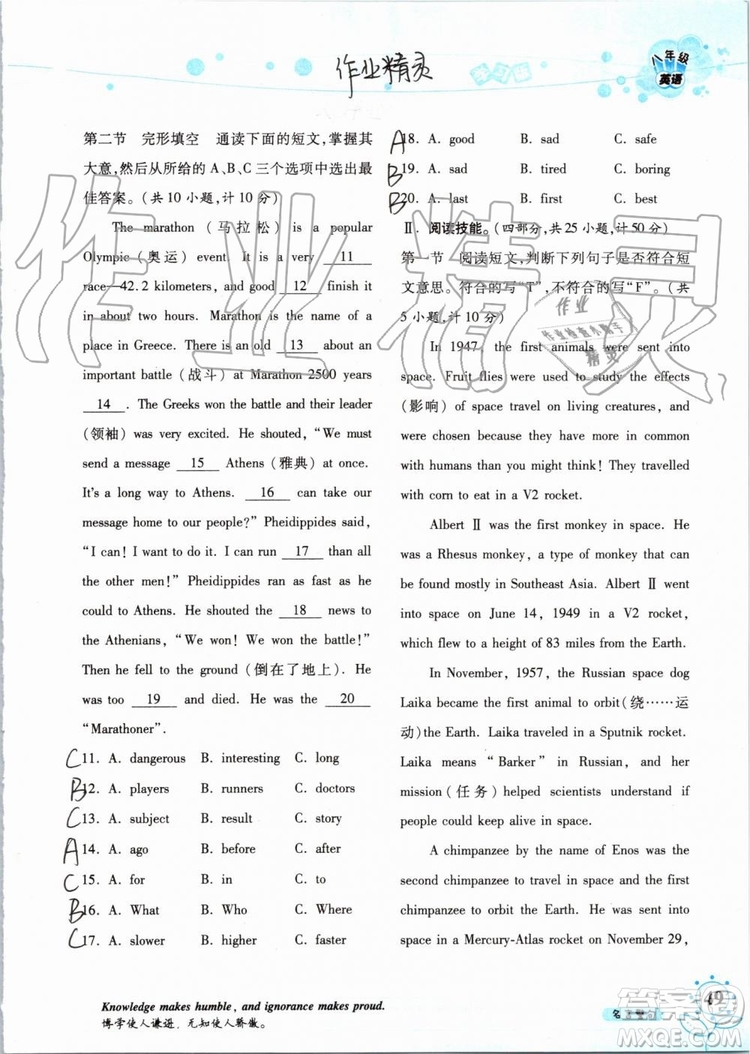 八年级
英语
作业精灵
第二节 完形填空 通读下面的短文,掌握其
大意,然后从所给的 A、B、C 三个选项中选出最
佳答案。(共 10 小题,计 10 分)
The marathon (马拉松) is a popular
Olympic (奥运) event. It is a very 11
race—42. 2 kilometers, and good 12 finish it
in about two hours. Marathon is the name of a
place in Greece. There is an old 13 about an
important battle (战斗) at Marathon 2500 years
14 . The Greeks won the battle and their leader
(领袖) was very excited. He shouted, “We must
send a message 15 Athens (雅典) at once.
It's a long way to Athens. 16 can take our
message home to our people?” Pheidippides said,
“I can! I want to do it. I can run 17 than all
the other men!” Pheidippides ran as fast as he
could to Athens. He shouted the 18 news to
the Athenians, “We won! We won the battle!”
Then he fell to the ground (倒在了地上). He
was too 19 and died. He was the 20
“Marathoner”.
C 11. A. dangerous B. interesting C. long
B 12. A. players B. runners C. doctors
C 13. A. subject B. result C. story
A 14. A. ago B. before C. after
C 15. A. for B. in C. to
B 16. A. What B. Who C. Where
C 17. A. slower B. higher C. faster
A 18. A. good B. sad C. safe
B 19. A. sad B. tired C. boring
B 20. A. last B. first C. best
Ⅱ. 阅读技能。(四部分,共 25 小题,计 50 分)
第一节 阅读短文,判断下列句子是否符合短
文意思。符合的写“T”,不符合的写“F”。(共
5 小题,计 10 分)
In 1947, the first animals were sent into
space. Fruit flies were used to study the effects
(影响) of space travel on living creatures, and
were chosen because they are more in common
with humans than you might think! They travelled
with corn to eat in a V2 rocket.
Albert Ⅱ was the first monkey in space. He
was a Rhesus monkey, a type of monkey that can
be found mostly in Southeast Asia. Albert Ⅱ went
into space on June 14, 1949 in a V2 rocket,
which flew to a height of 83 miles from the Earth.
In November, 1957, the Russian space dog
Laika became the first animal to orbit (绕……运
动) the Earth. Laika traveled in a Sputnik rocket.
Laika means “Barker” in Russian, and her
mission (任务) helped scientists understand if
people could keep alive in space.
A chimpanzee by the name of Enos was the
second chimpanzee to travel in space and the first
chimpanzee to orbit the Earth. He was sent into
space in a Mercury-Atlas rocket on November 29,
Knowledge makes humble, and ignorance makes proud.
博学使人谦逊,无知使人骄傲。
49
作业精灵
答案圈
MXQE.COM